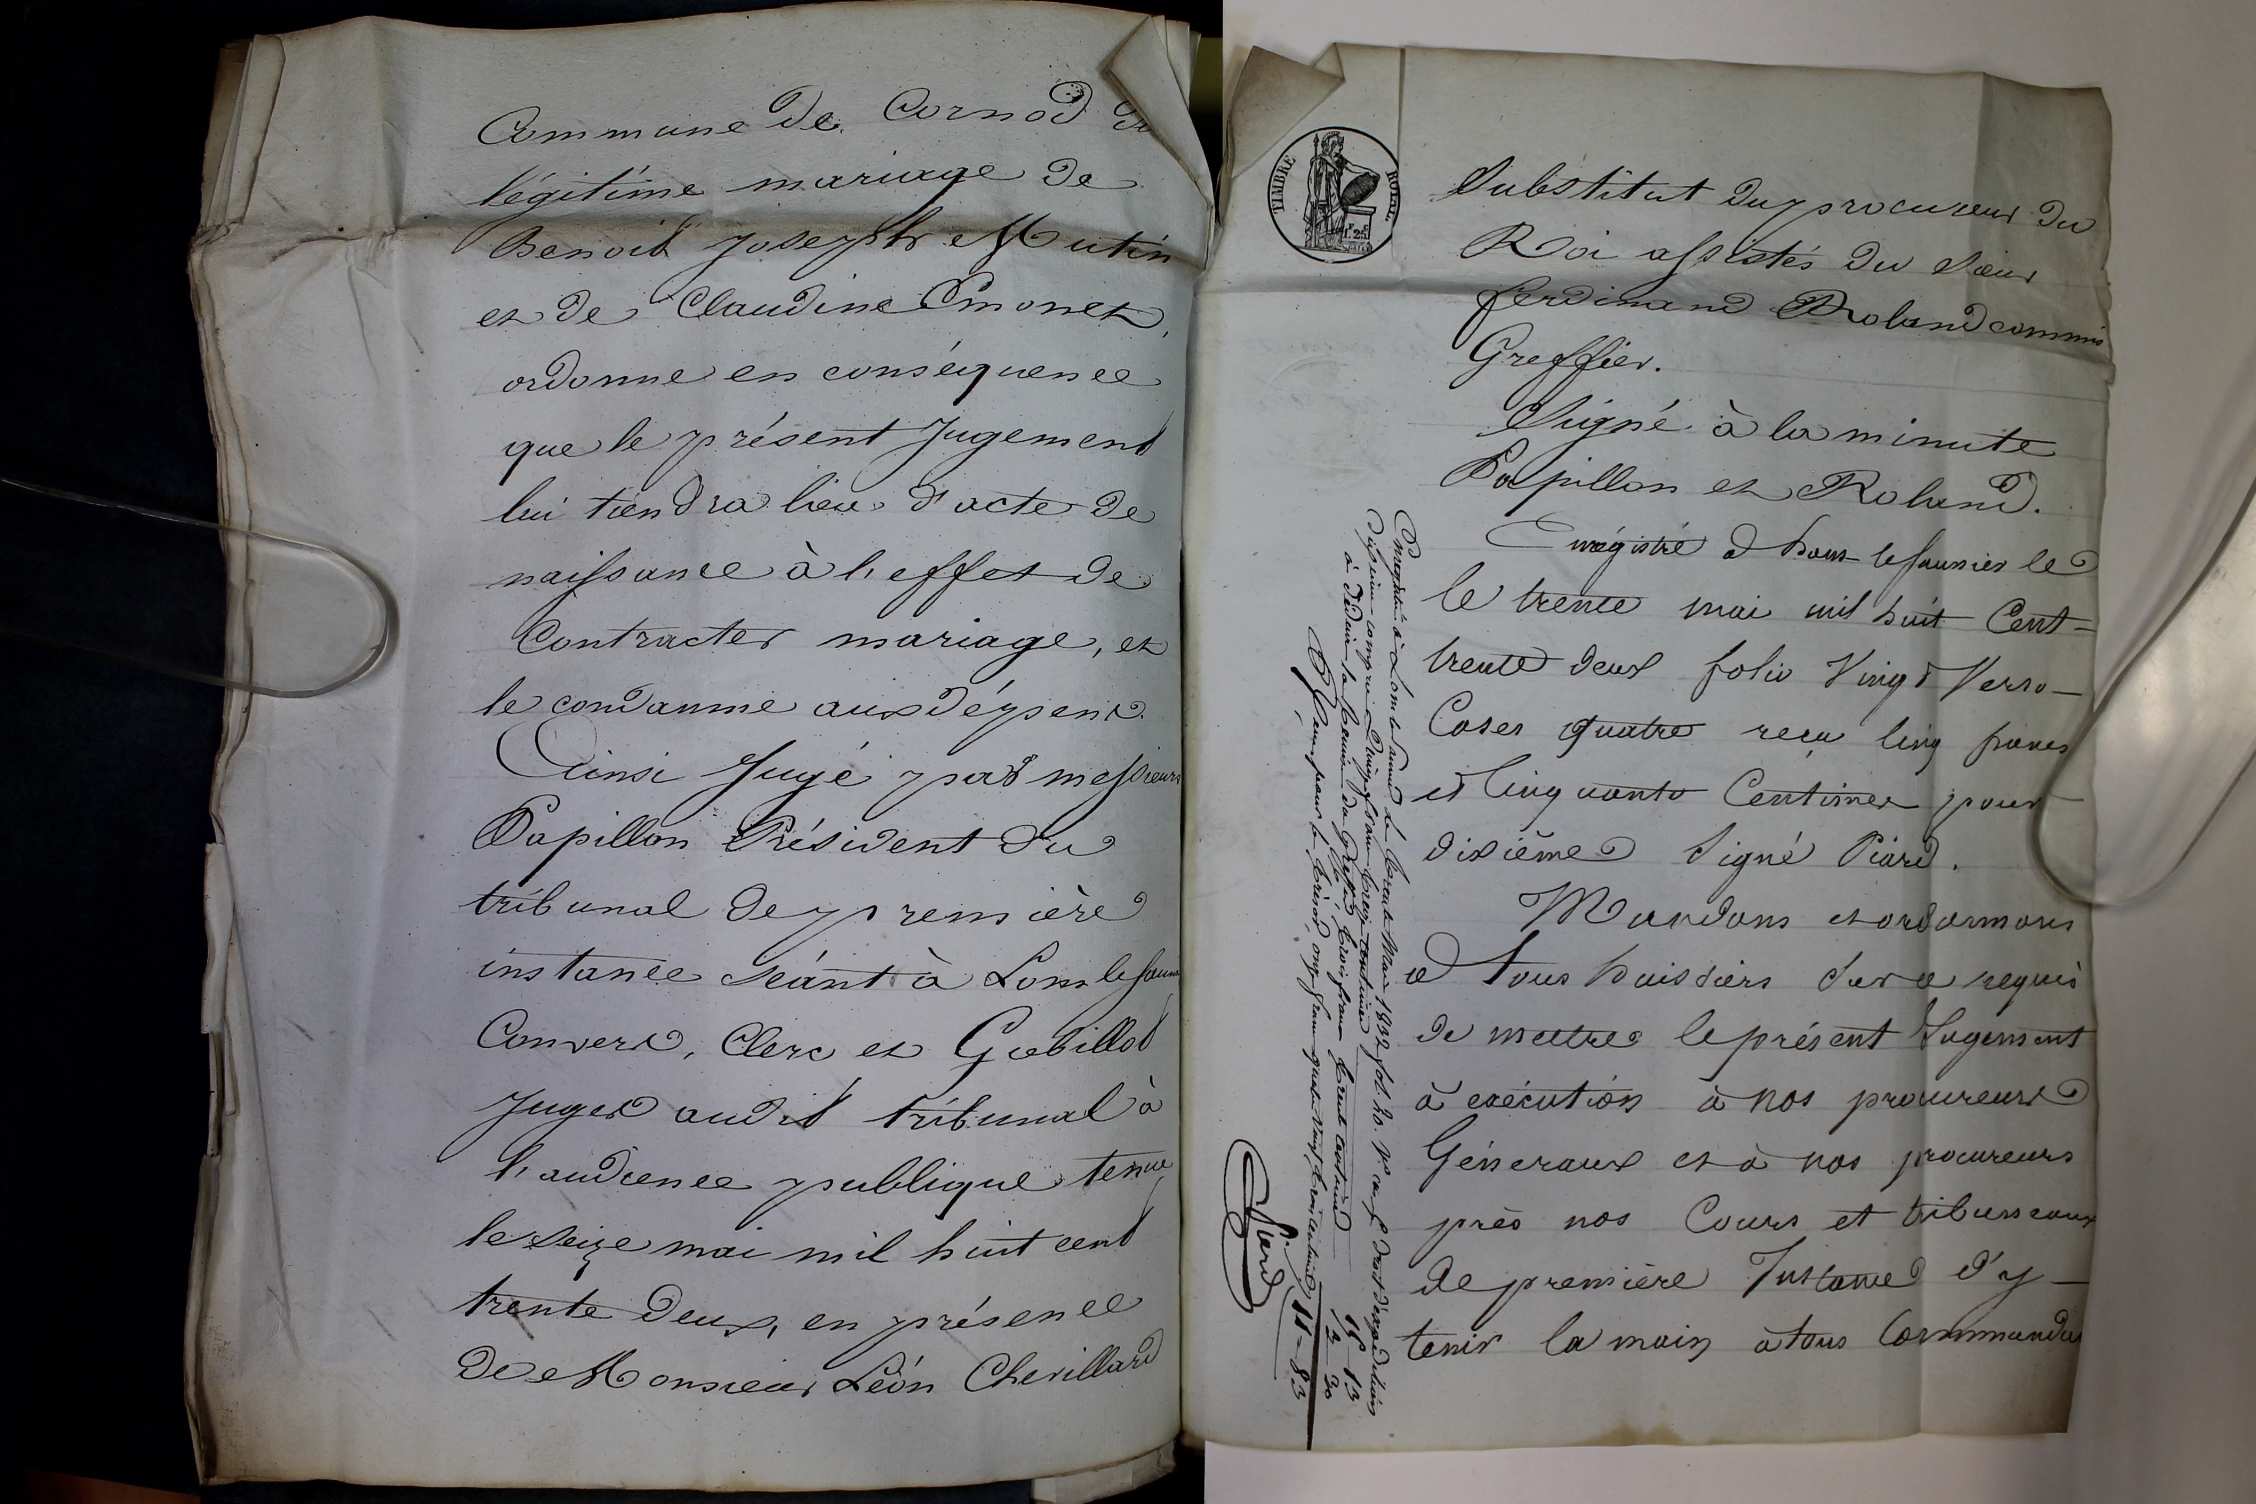 Commune de Cornod du
légitime mariage de
Benoit Joseph Mutin
et de Claudine Emonet,
ordonne en conséquence
que le présent Jugement
lui tiendra lieu d'acte de
naissance à l'effet de
Contracter mariage, et
le condamne aux dépens.
Ainsi Jugé par messieurs
Papillon Président du
tribunal de première
instance séant à Lons le saunier
Convers, Clerc et Gabillot
Juges audit tribunal à
l'audience publique tenue
le seize mai mil huit cent
trente deux, en présence
de Monsieur Léon Chevillard
TIMBRE ROYAL
1 F. 25 C.
Substitut du procureur du
Roi assistés du sieur
ferdinand Roland commis
Greffier.
Signé à la minute
Papillon et Roland.
Enregistré a Lons le saunier le
le trente mai mil huit Cent
trente deux folio Vingt Verso
Cases quatre reçu Cinq francs
et Cinquante Centimes pour
dixième Signé Piard.
Mandons et ordonnons
a tous huissiers sur ce requis
de mettre le présent Jugement
à exécution à nos procureurs
Géneraux et à nos procureurs
près nos Cours et tribunaux
de première Instance d'y
tenir la main à tous Commandans
Enregistré à Lons le Saunier le trente Mai 1832 fol. 20. Vo case 4 droit d'expédition
dixième compris quinze francs treize centimes 15 13
à déduire la remise du Greffe trois francs trente centimes 3 30
Reste pour le trésor onze francs quatre Vingt trois centimes 11 = 83
Piard